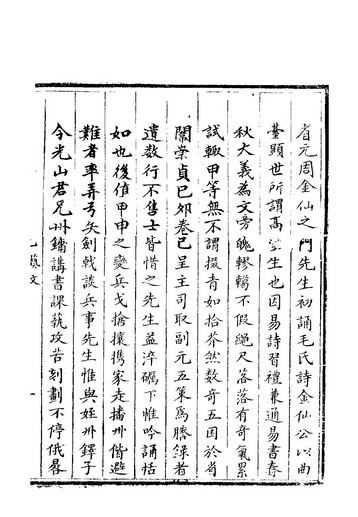 省元周金仙之門先生初誦毛氏詩金仙公以曲
臺顯世所謂高堂生也因易詩習禮兼通易書春
秋大義為文旁魄轇轕不假繩尺落落有奇氣累
試輙甲等無不謂掇青如拾芥然數奇五困於省
闈崇貞己卯卷已呈主司取副元五策爲謄錄者
遺数行不售士皆惜之先生益淬礪下惟吟誦恬
如也後值甲申之變兵戈搶攘携家走播州偕避
難者率弄弓矢劍戟談兵事先生惟與姪州鐸子
今光山君兄州鐇講書課藝攻苦刻劃不停俄晷
藝文